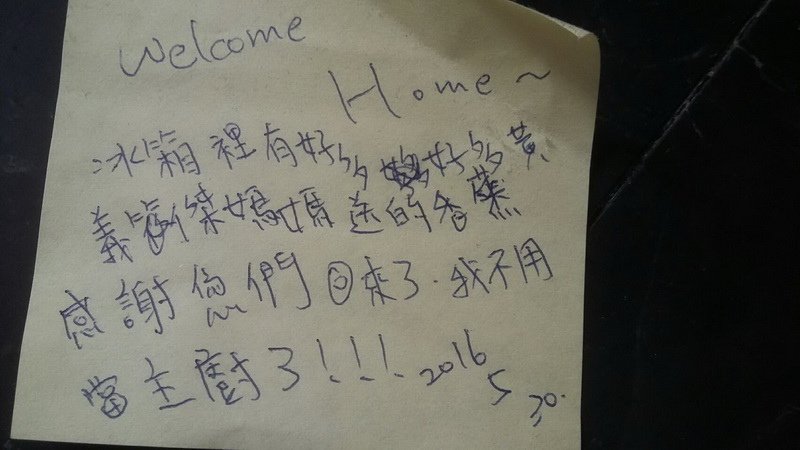 Welcome
Home~
冰箱裡有好多好多黃
義傑媽媽送的香蕉
感謝您們回來了.我不用
當主廚了!!!2016
5
30.